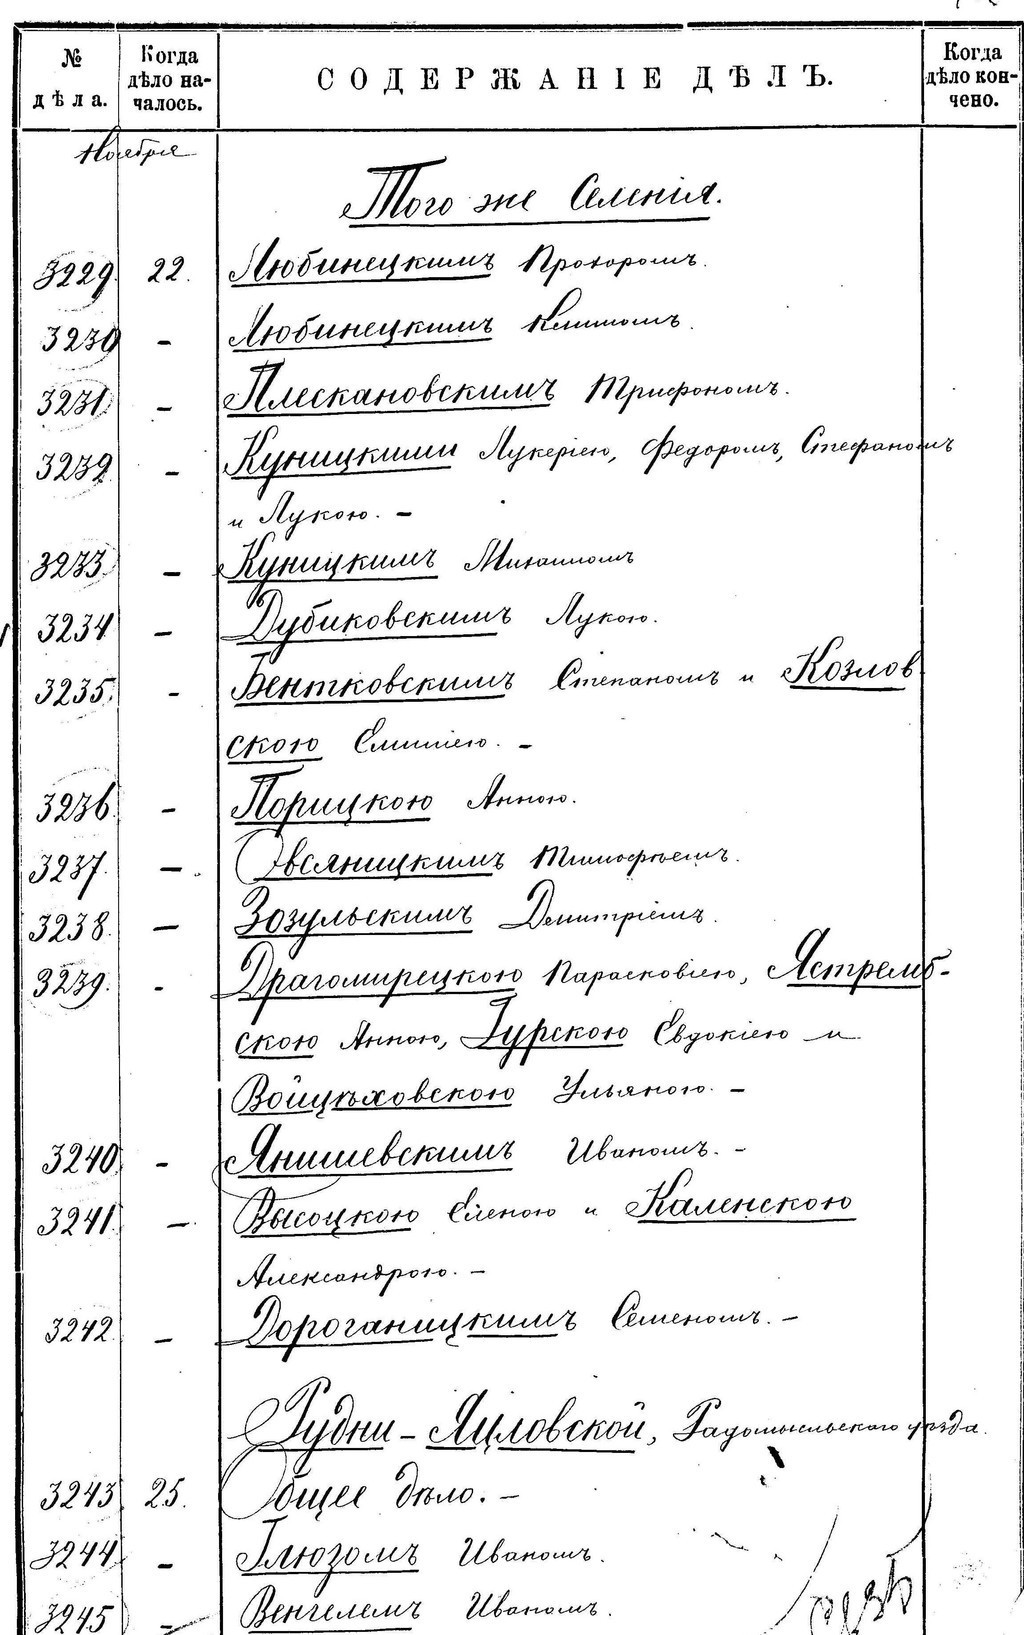 № дѣла. Когда дѣло на-чалось. СОДЕРЖАНІЕ ДѢЛЪ. Когда дѣло кон-чено.
Ноября
Того же Селенія.
3229. 22. Любинецкимъ Прохоромъ.
3230 - Любинецкимъ Климомъ.
3231. - Плескановскимъ Трифономъ.
3232 - Куницкими Лукеріею, Федоромъ, Стефаномъ
и Лукою. -
3233. - Куницкимъ Михаиломъ
3234 - Дубиковскимъ Лукою.
3235. - Бентковскимъ Степаномъ и Козлов
скою Емиліею. -
3236. - Порицкою Анною.
3237. - Овсяницкимъ Тимофѣемъ.
3238. - Зозульскимъ Димитріемъ.
3239. - Драгомирецкою Парасковіею, Ястремб-
скою Анною, Гурскою Евдокіею и
Войцѣховскою Ульяною. -
3240. - Янишевскимъ Иваномъ. -
3241. - Высоцкою Еленою и Каленскою
Александрою. -
3242. - Дороганицкимъ Семеномъ. -
Рудни - Яцловской, Радомысльскаго уѣзда.
3243 25. Общее дѣло. -
3244 - Глюзомъ Иваномъ.
3245 - Венгелемъ Иваномъ.